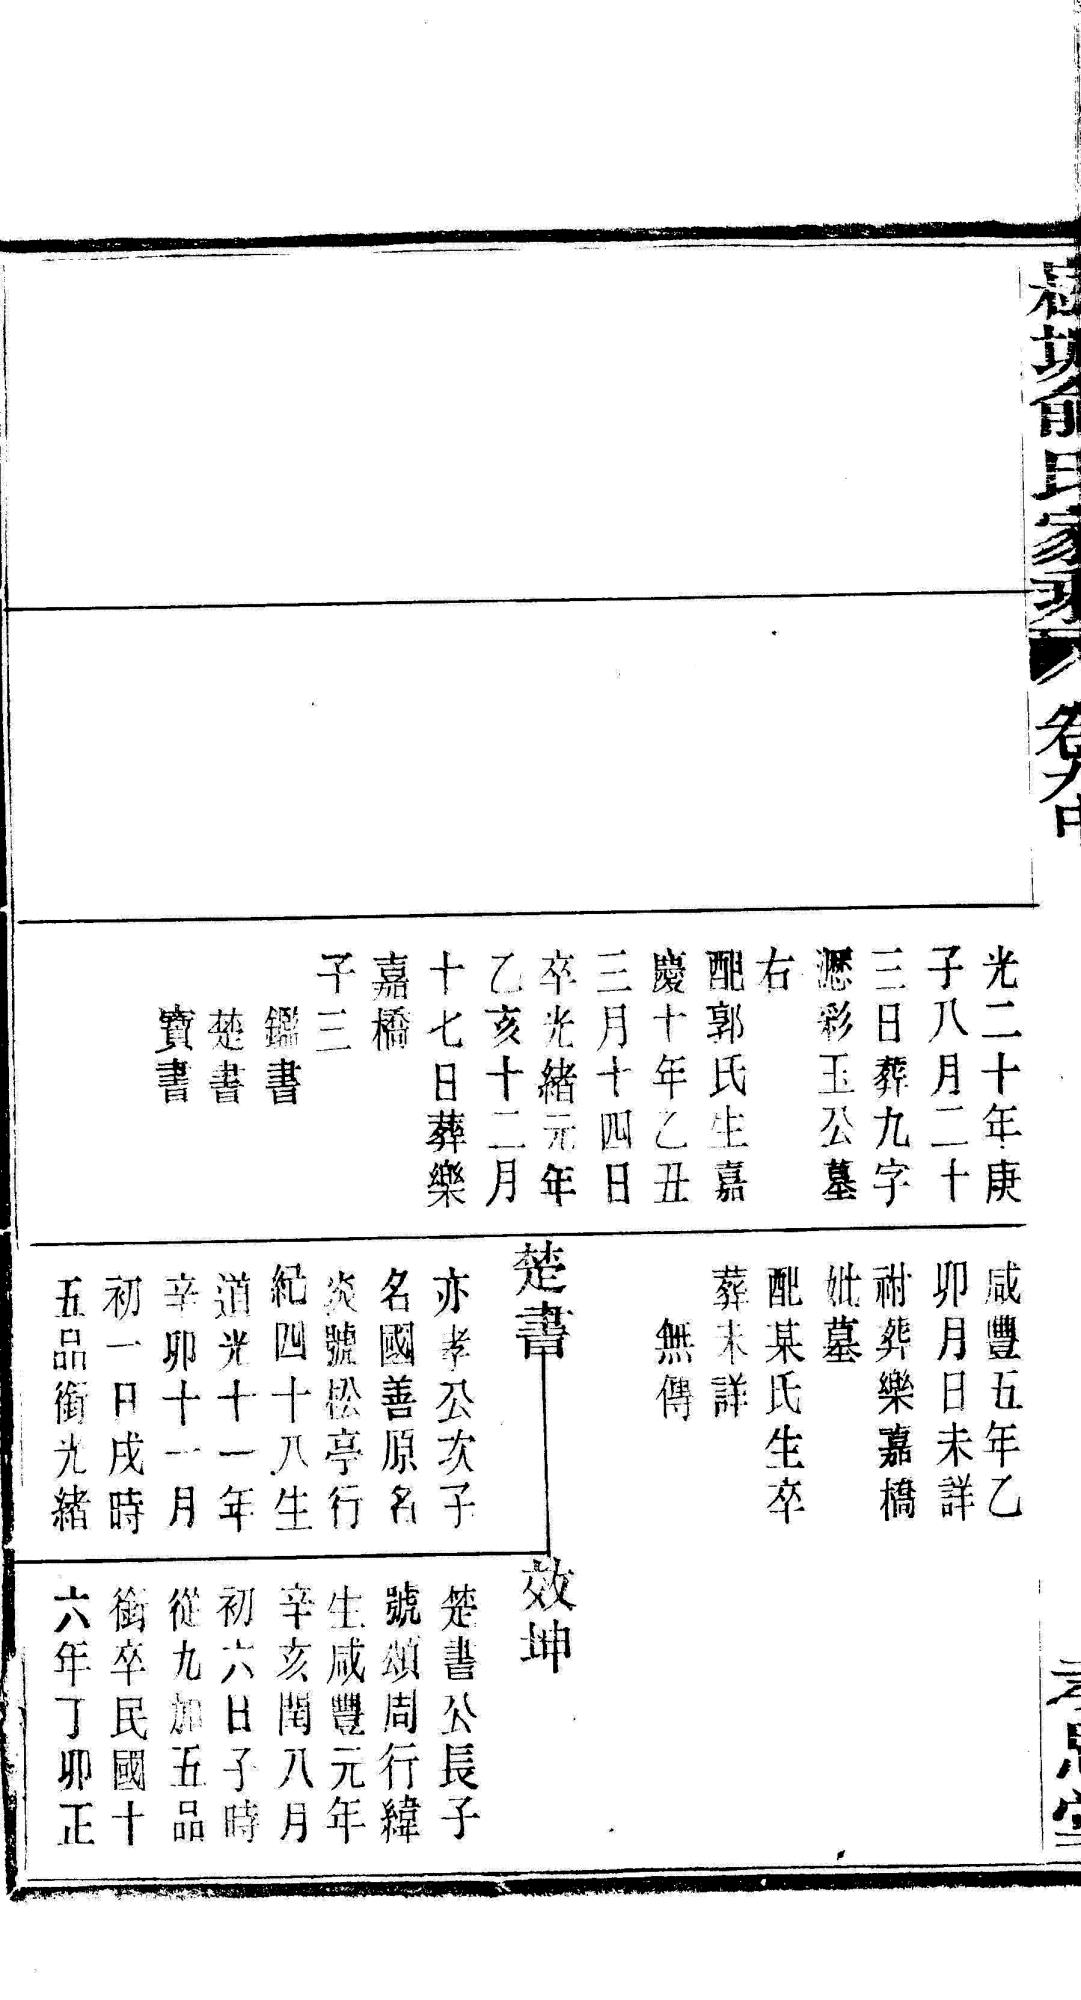 俞氏家乘
卷九中
光二十年庚
子八月二十
三日葬九字
彩玉公墓
右
配郭氏生嘉
慶十年乙丑
三月十四日
卒光緒元年
乙亥十二月
十七日葬樂
嘉橋
子三
鑑書
楚書
寶書
咸豐五年乙
卯月日未詳
祔葬樂嘉橋
妣墓
配某氏生卒
葬未詳
無傳
楚書
亦孝公次子
名國善原名
炎號松亭行
紀四十八生
道光十一年
辛卯十一月
初一日戌時
五品銜光緒
效坤
楚書公長子
號頌周行緯
生咸豐元年
辛亥閏八月
初六日子時
從九加五品
銜卒民國十
六年丁卯正
孝思堂